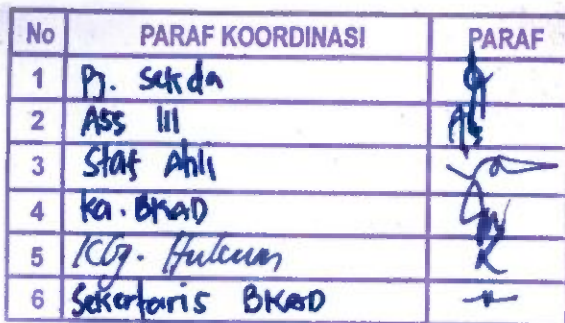 No PARAF KOORDINASI PARAF
1 Pj. Sekda
2 Ass III
3 Staf Ahli
4 Ka. BKAD
5 Kbg. Hukum
6 Sekertaris BKAD